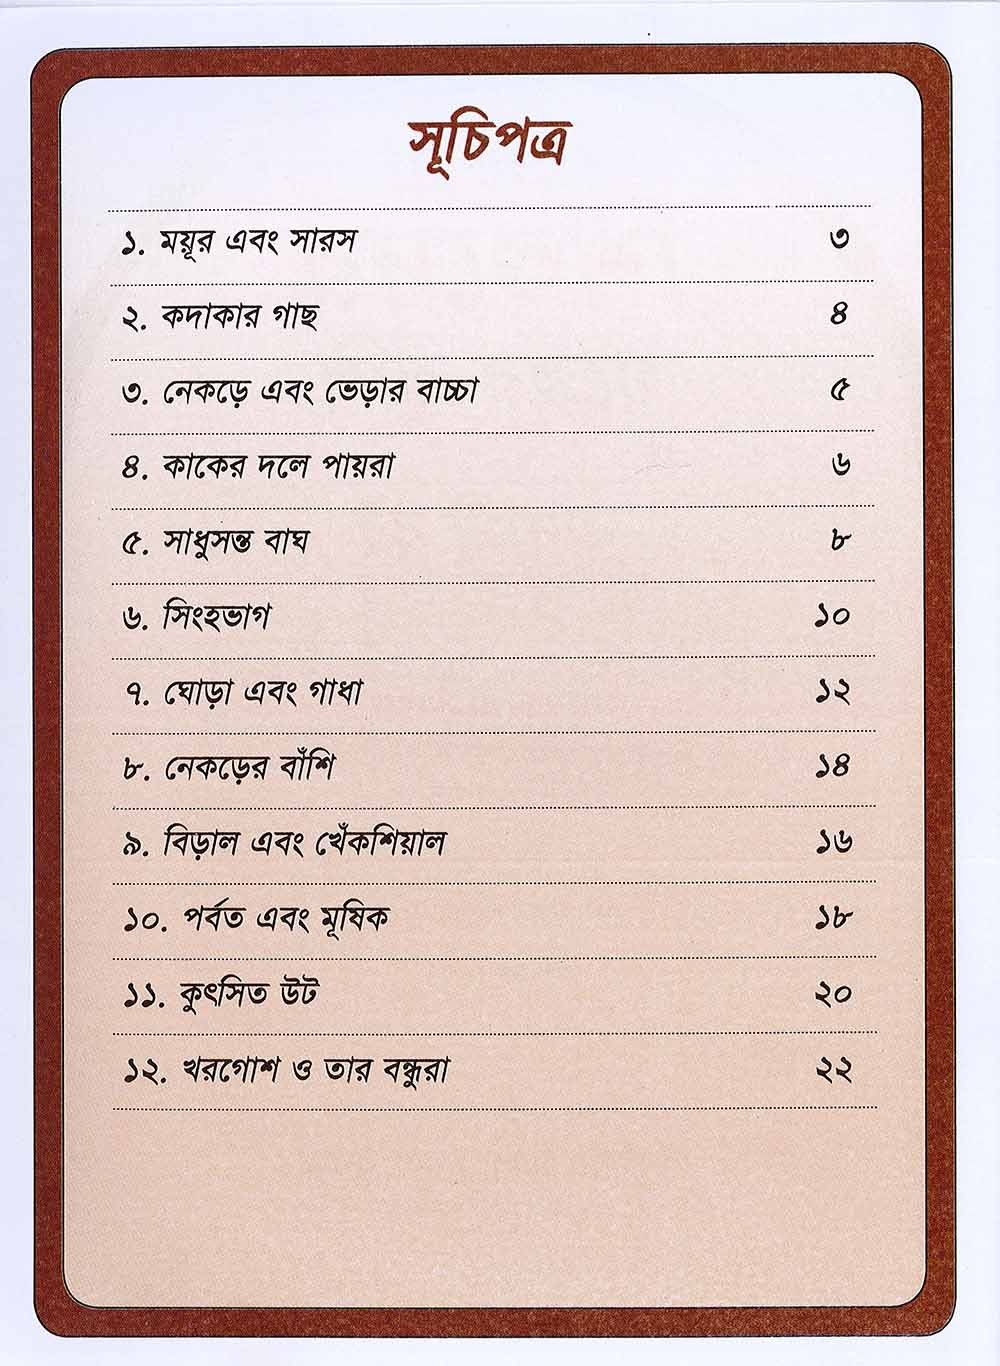 সূচিপত্র
১. ময়ূর এবং সারস ৩
২. কদাকার গাছ ৪
৩. নেকড়ে এবং ভেড়ার বাচ্চা ৫
৪. কাকের দলে পায়রা ৬
৫. সাধুসন্ত বাঘ ৮
৬. সিংহভাগ ১০
৭. ঘোড়া এবং গাধা ১২
৮. নেকড়ের বাঁশি ১৪
৯. বিড়াল এবং খেঁকশিয়াল ১৬
১০. পর্বত এবং মূষিক ১৮
১১. কুৎসিত উট ২০
১২. খরগোশ ও তার বন্ধুরা ২২